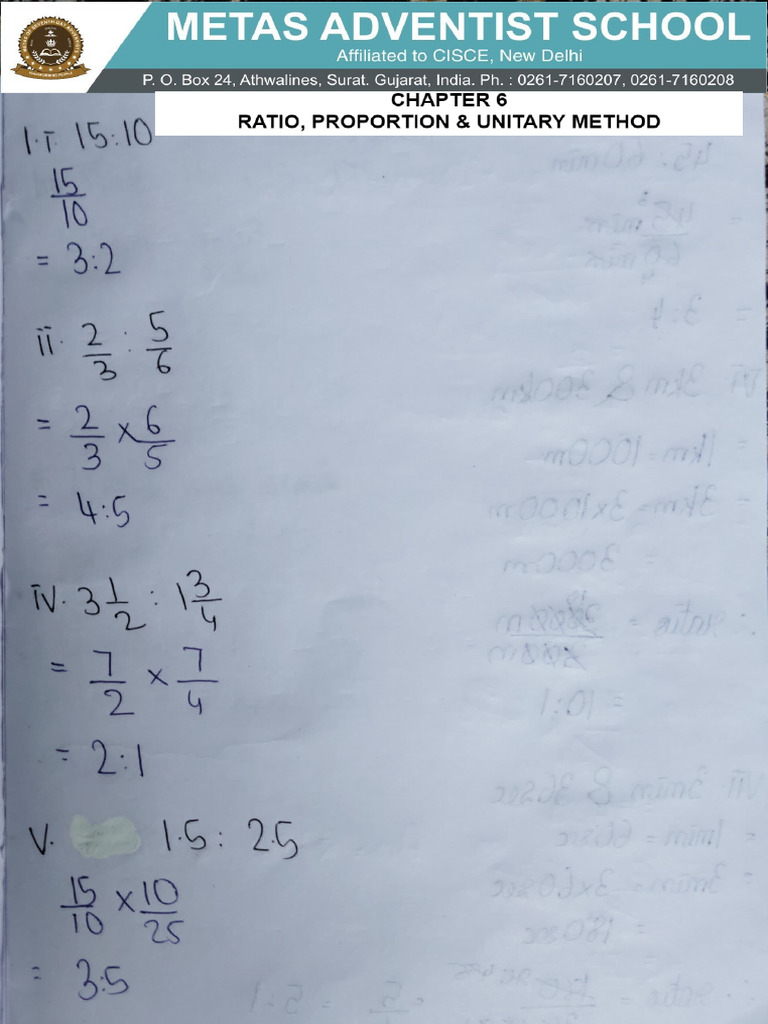 METAS ADVENTIST SCHOOL
Affiliated to CISCE, New Delhi
P. O. Box 24, Athwalines, Surat. Gujarat, India. Ph. : 0261-7160207, 0261-7160208
CHAPTER 6
RATIO, PROPORTION & UNITARY METHOD
1. i. 15:10
15/10
= 3:2
ii. 2/3 : 5/6
= 2/3 × 6/5
= 4:5
iv. 3 1/2 : 1 3/4
= 7/2 × 7/4
= 2:1
v. 1.5 : 2.5
15/10 × 10/25
= 3:5